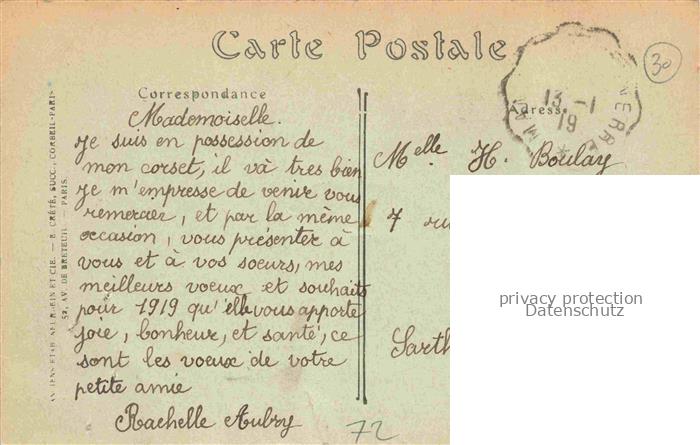 Carte Postale
30
Correspondance
Adresse
13 -1
19
Mademoiselle.
Je suis en possession de
mon corset, il và tres bien
je m'empresse de venir vous
remercier, et par la même
occasion, vous présenter à
vous et à vos soeurs, mes
meilleurs voeux et souhaits
pour 1919 qu'elle vous apporte
joie, bonheur, et santé, ce
sont les voeux de votre
petite amie
Rachelle Aubry
72
Melle H. Boulay
7 ru
Sarth
privacy protection
Datenschutz
ET CIE. — E. CRÉTÉ, SUCC., CORBEIL-PARIS
52, AV. DE BRETEUIL — PARIS.